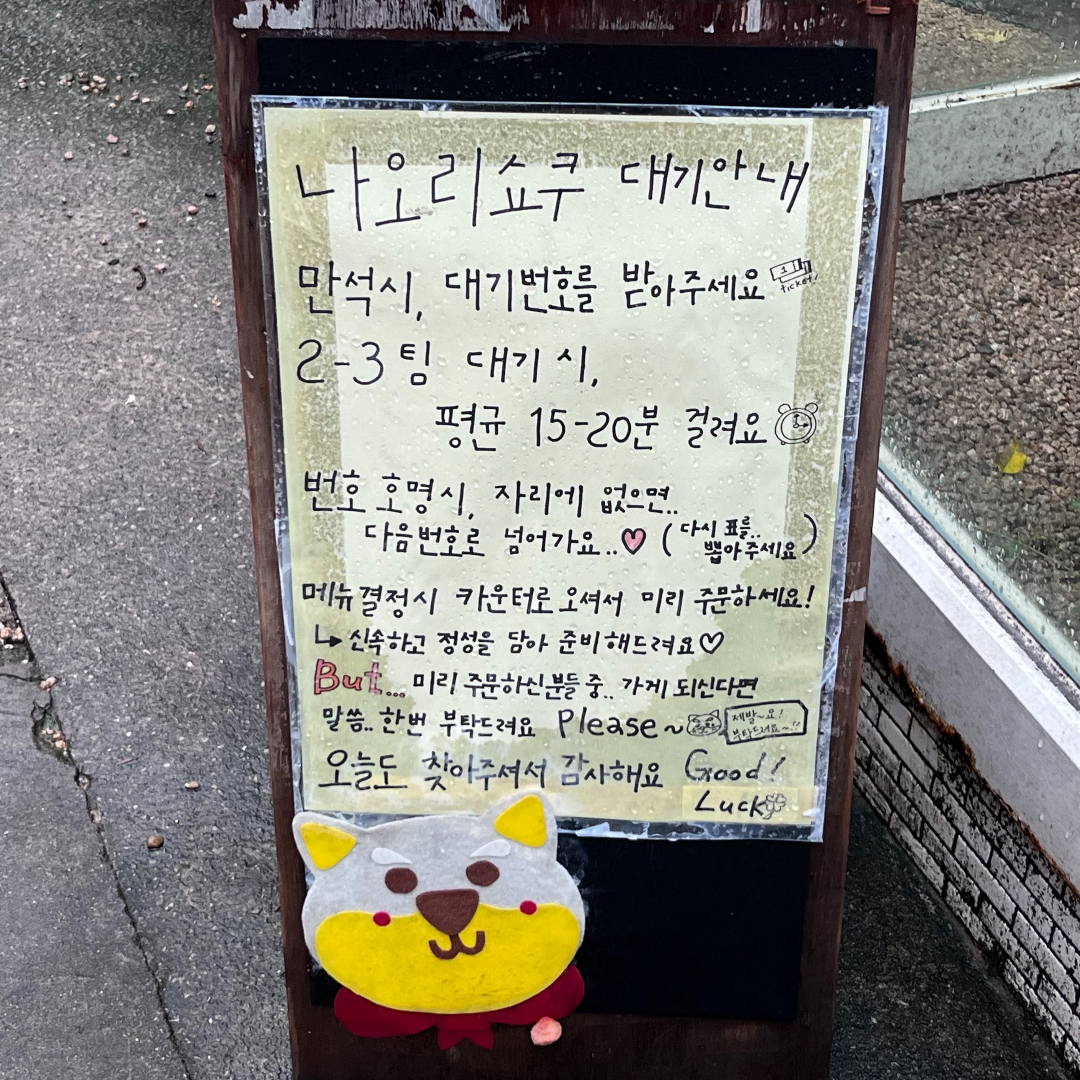 나오리쇼쿠 대기안내
만석시, 대기번호를 받아주세요
1
ticket!
2-3팀 대기 시,
평균 15-20분 걸려요
번호 호명시, 자리에 없으면..
다음번호로 넘어가요..♥ (다시 표를.. 뽑아주세요)
메뉴결정시 카운터로 오셔서 미리 주문하세요!
↳ 신속하고 정성을 담아 준비해드려요♡
But... 미리 주문하신분들 중.. 가게 되신다면
말씀.. 한번 부탁드려요 Please~
제발~요!
부탁드려요~!!
오늘도 찾아주셔서 감사해요 Good!
Luck